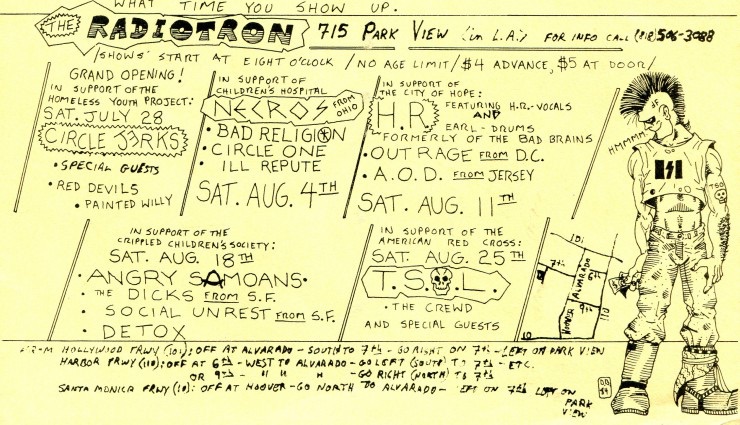 WHAT TIME YOU SHOW UP.
THE RADIOTRON 715 PARK VIEW (in L.A.) FOR INFO CALL (818) 506-3088
/SHOWS START AT EIGHT O'CLOCK / NO AGE LIMIT / $4 ADVANCE, $5 AT DOOR /
GRAND OPENING!
IN SUPPORT OF THE
HOMELESS YOUTH PROJECT:
SAT. JULY 28
CIRCLE JERKS
• SPECIAL GUESTS
• RED DEVILS
• PAINTED WILLY
IN SUPPORT OF
CHILDREN'S HOSPITAL
NECROS FROM OHIO
• BAD RELIGION
• CIRCLE ONE
• ILL REPUTE
SAT. AUG. 4TH
IN SUPPORT OF
THE CITY OF HOPE:
H.R. FEATURING H.R.-VOCALS
AND
EARL-DRUMS
FORMERLY OF THE BAD BRAINS
• OUTRAGE FROM D.C.
• A.O.D. FROM JERSEY
SAT. AUG. 11TH
HMMMM
TSOL
IN SUPPORT OF THE
CRIPPLED CHILDREN'S SOCIETY:
SAT. AUG. 18TH
• ANGRY SAMOANS •
• THE DICKS FROM S.F.
• SOCIAL UNREST FROM S.F.
• DETOX
IN SUPPORT OF THE
AMERICAN RED CROSS:
SAT. AUG. 25TH
T.S.O.L.
• THE CREWD
AND SPECIAL GUESTS
101
7th
6th
ALVARADO
9th
HOOVER
110
10
FROM HOLLYWOOD FRWY (101): OFF AT ALVARADO - SOUTH TO 7th - GO RIGHT ON 7th - LEFT ON PARK VIEW
HARBOR FRWY (110): OFF AT 6th - WEST TO ALVARADO - GO LEFT (SOUTH) TO 7th - ETC.
OR 9th - " " " - GO RIGHT (NORTH) TO 7th
SANTA MONICA FRWY (10): OFF AT HOOVER - GO NORTH TO ALVARADO - LEFT ON 7th LEFT ON
PARK
VIEW